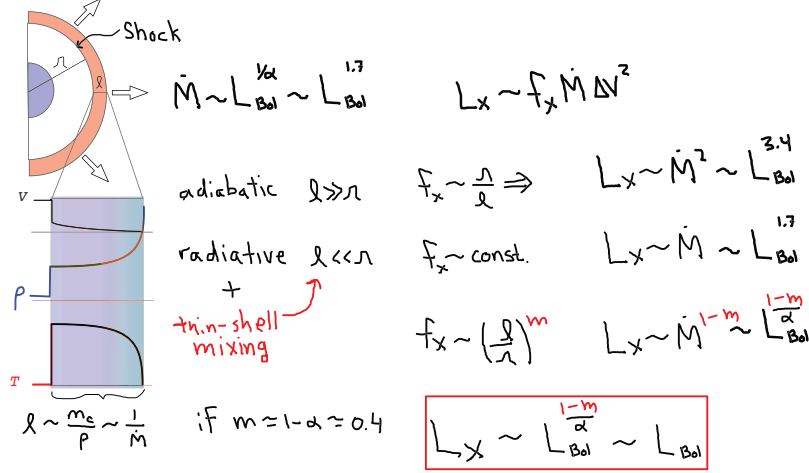 Shock
r
ℓ
Ṁ ~ L_Bol^{1/α} ~ L_Bol^{1.7}
L_X ~ f_X Ṁ ΔV²
adiabatic ℓ >> r
f_X ~ r/ℓ ⇒ L_X ~ Ṁ² ~ L_Bol^{3.4}
radiative ℓ << r
f_X ~ const. L_X ~ Ṁ ~ L_Bol^{1.7}
+
thin-shell
mixing
f_X ~ (ℓ/r)^m L_X ~ Ṁ^{1-m} ~ L_Bol^{(1-m)/α}
V
ρ
T
ℓ ~ m_c/ρ ~ 1/Ṁ
if m ≈ 1-α ≈ 0.4
L_X ~ L_Bol^{(1-m)/α} ~ L_Bol